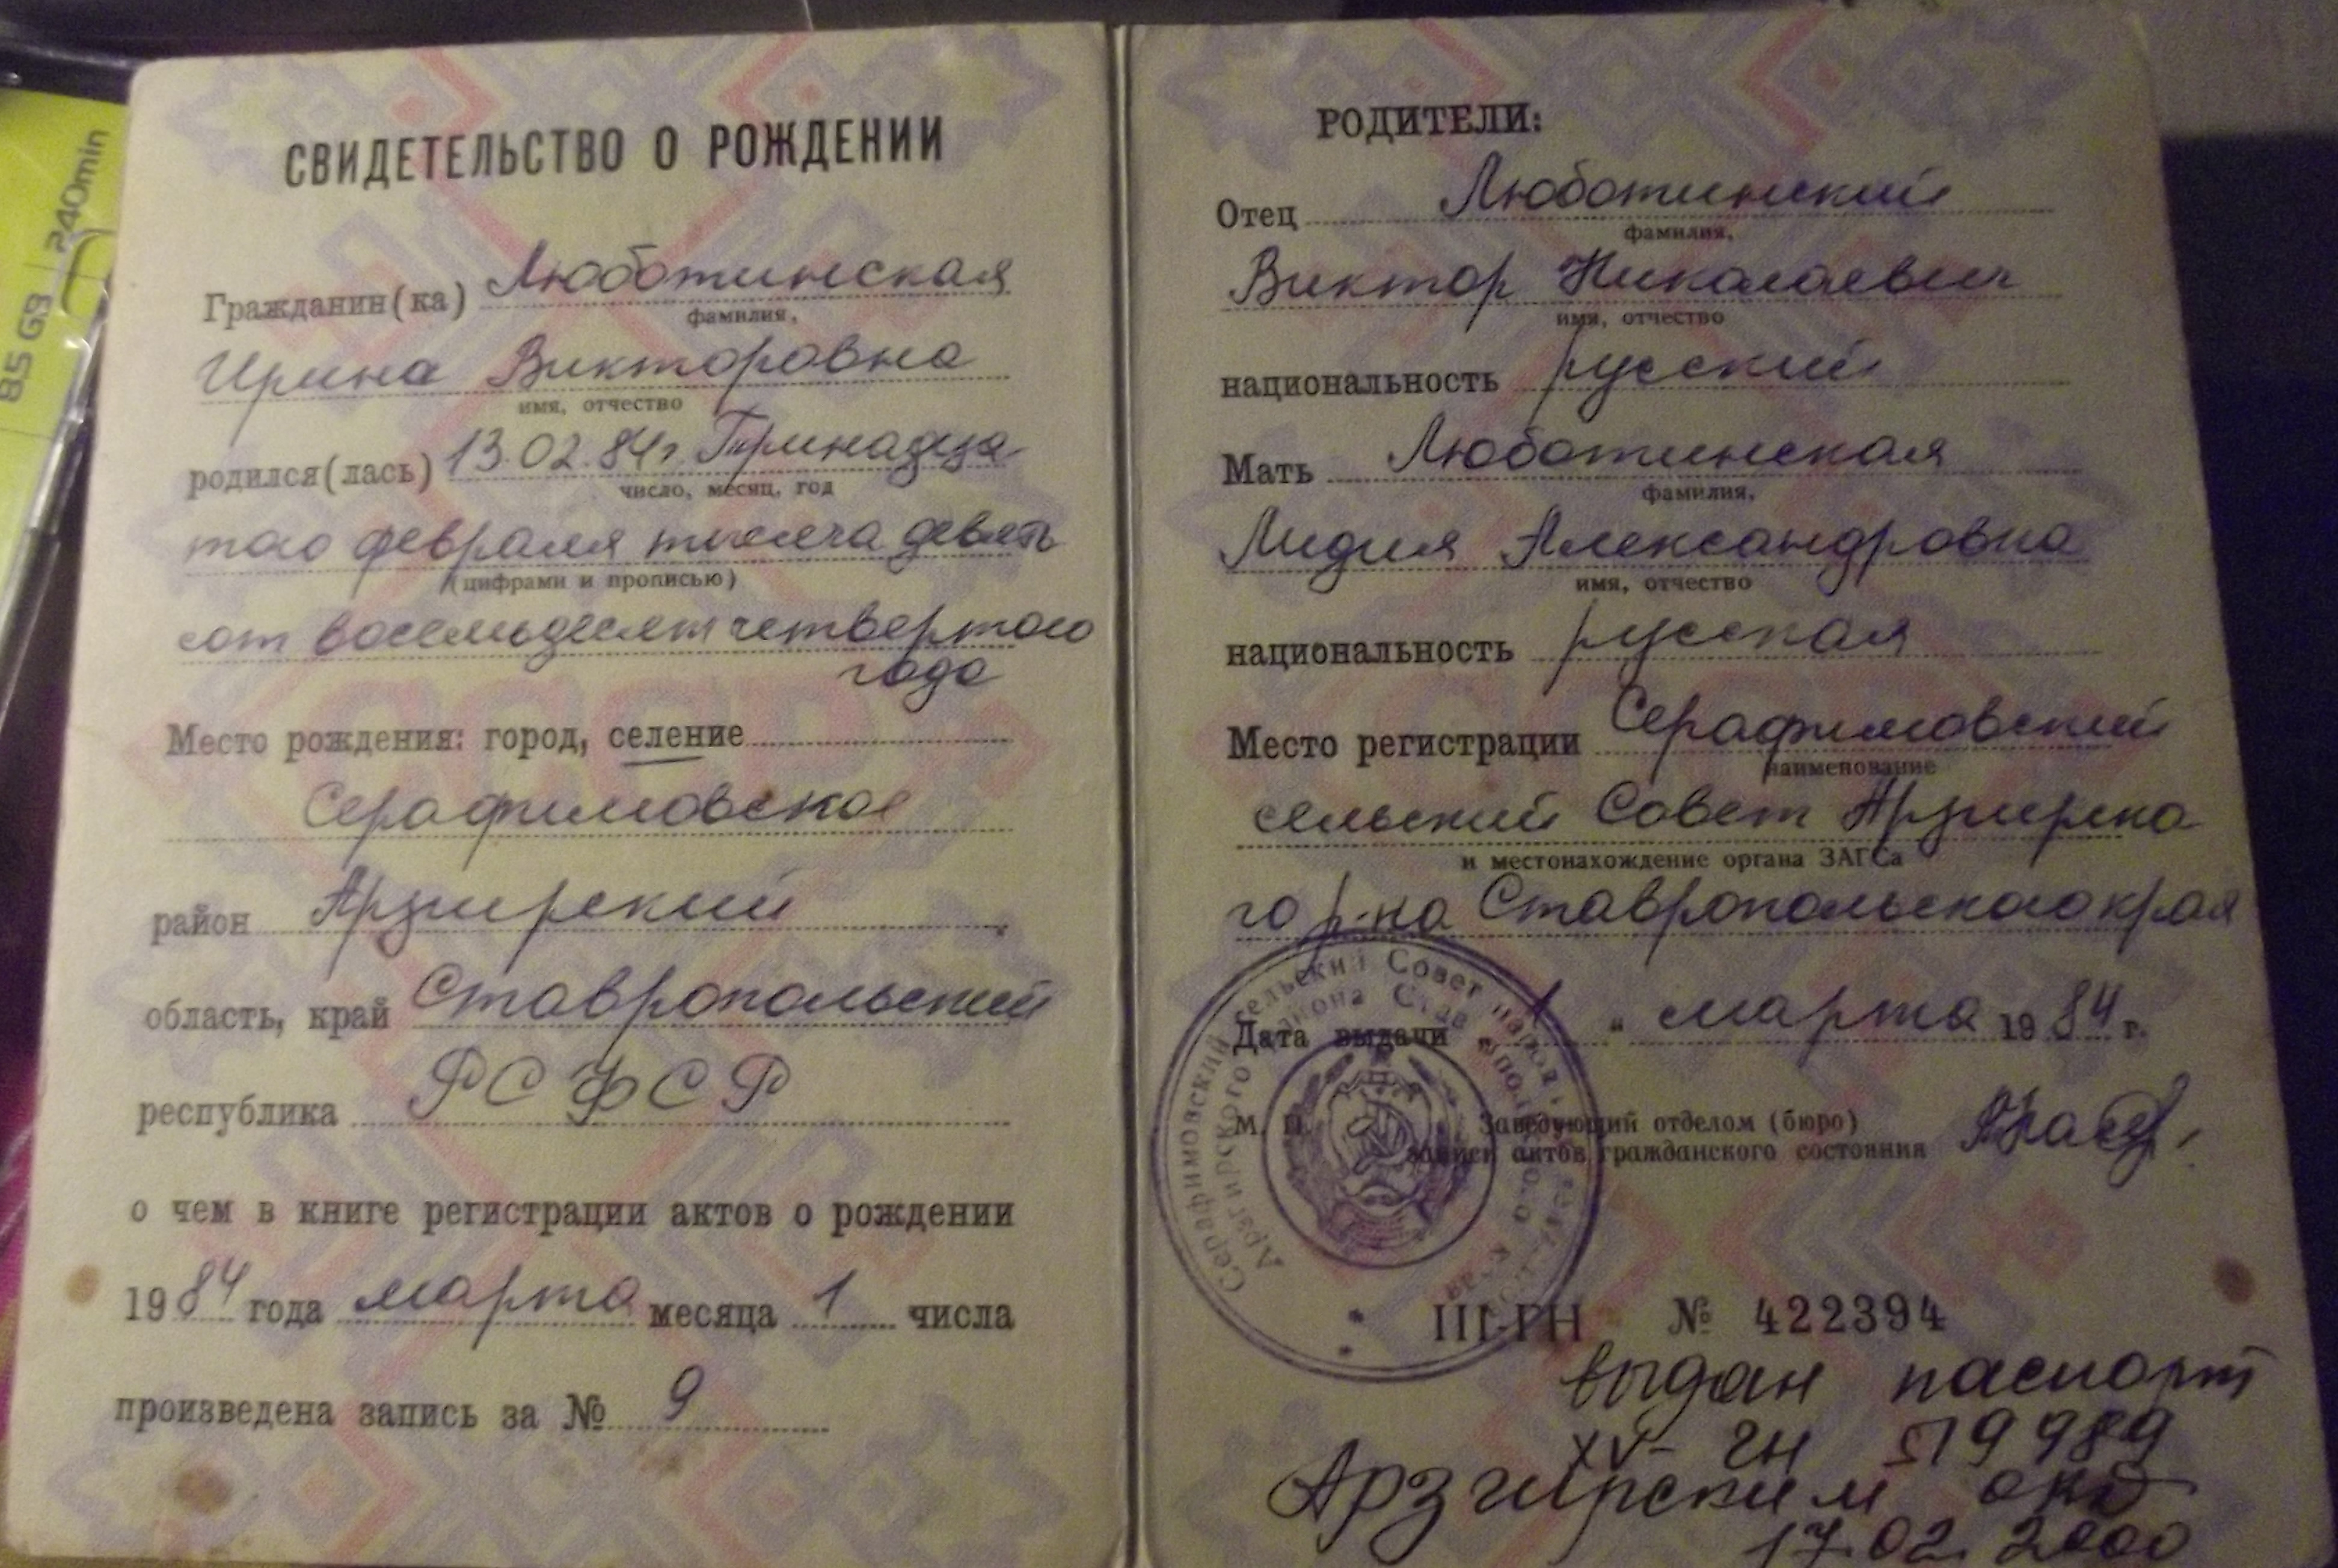 85 GB 240min
СВИДЕТЕЛЬСТВО О РОЖДЕНИИ
Гражданин(ка) Люботинская
фамилия,
Ирина Викторовна
имя, отчество
родился(лась) 13.02.84г. Тринадца
число, месяц, год
того февраля тысяча девять
(цифрами и прописью)
сот восемьдесят четвертого
года
Место рождения: город, селение
Серафимовское
район Арзгирский
область, край Ставропольский
республика РСФСР
о чем в книге регистрации актов о рождении
1984 года марта месяца 1 числа
произведена запись за № 9
РОДИТЕЛИ:
Отец Люботинский
фамилия,
Виктор Николаевич
имя, отчество
национальность русский
Мать Люботинская
фамилия,
Лидия Александровна
имя, отчество
национальность русская
Место регистрации Серафимовский
наименование
сельский Совет Арзгирско
и местонахождение органа ЗАГСа
го р-на Ставропольского края
Дата выдачи „ 1 " марта 1984 г.
М. П. Заведующий отделом (бюро)
записи актов гражданского состояния
Серафимовский сельский Совет народн
Арзгирского района Став края
III-ГН № 422394
выдан паспорт
XV- ГН 519989
Арзгирским
17.02.2000